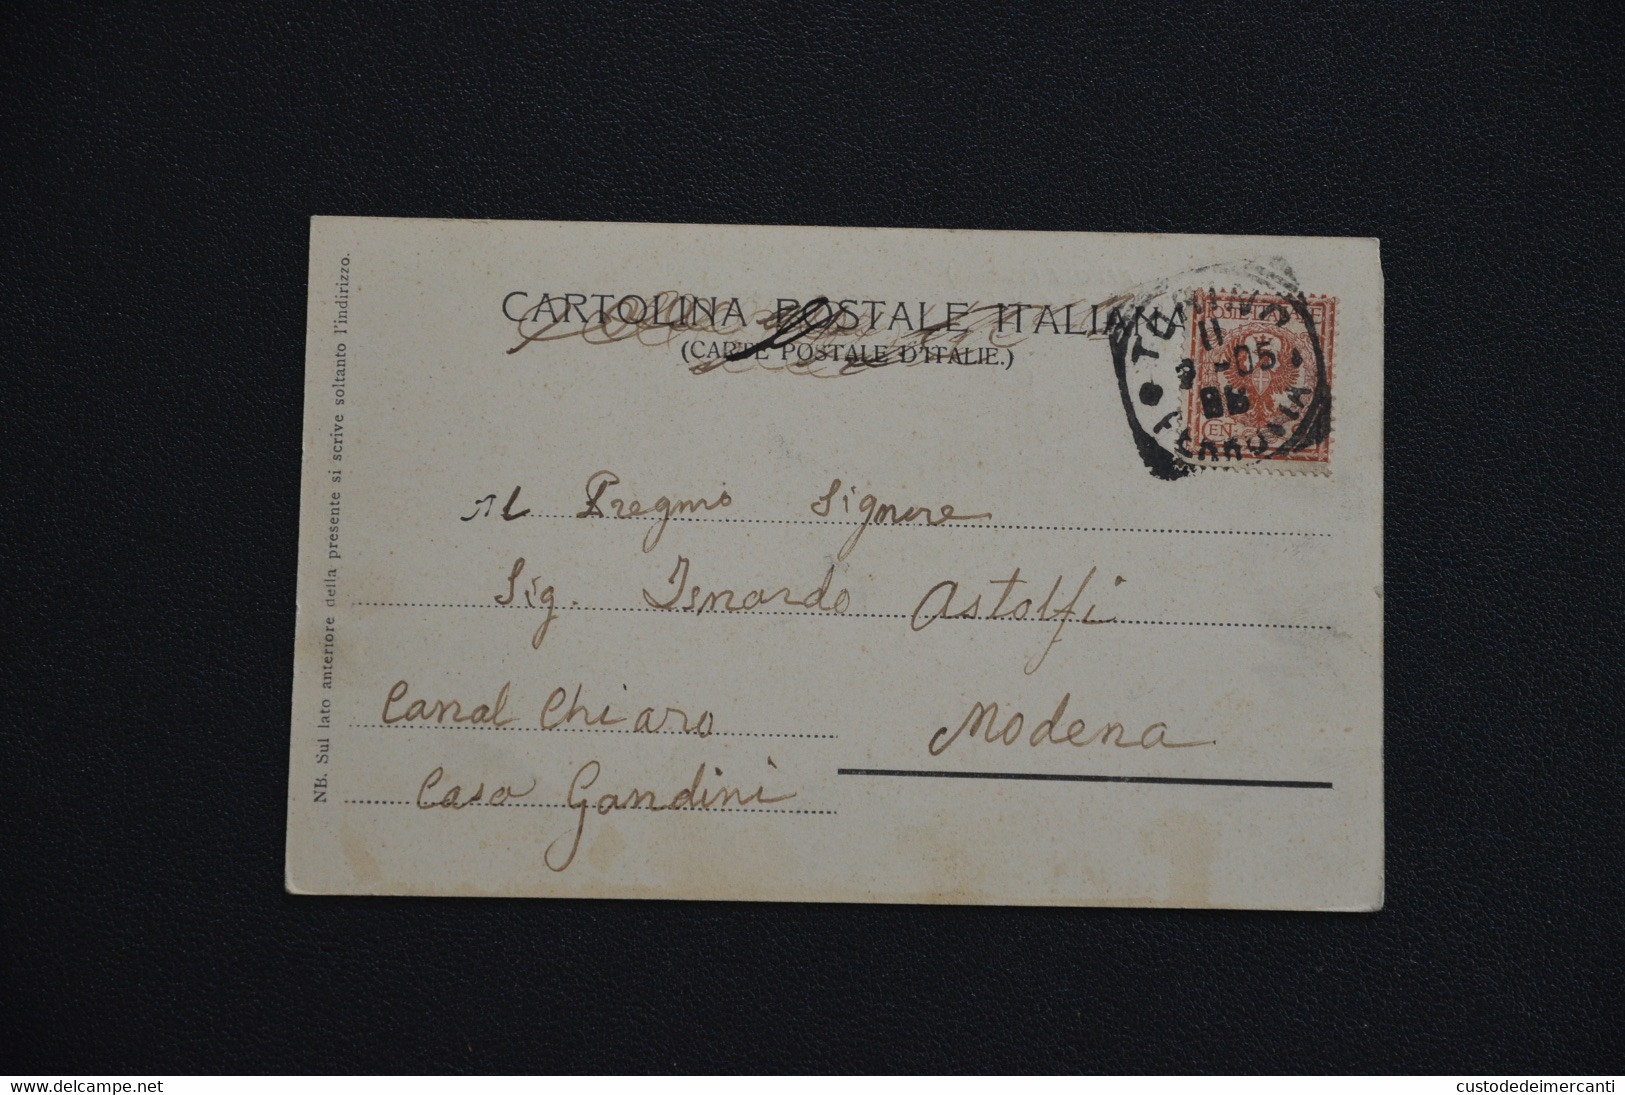 CARTOLINA POSTALE ITALIANA
(CARTE POSTALE D'ITALIE.)
TORINO
11
3-05
FERROVIA
POSTE ITALIANE
CEN.
Al Pregmo Signore
Sig. Isnardo Astolfi
Canal Chiaro
Modena
Casa Gandini
NB. Sul lato anteriore della presente si scrive soltanto l'indirizzo.
www.delcampe.net
custodedeimercanti